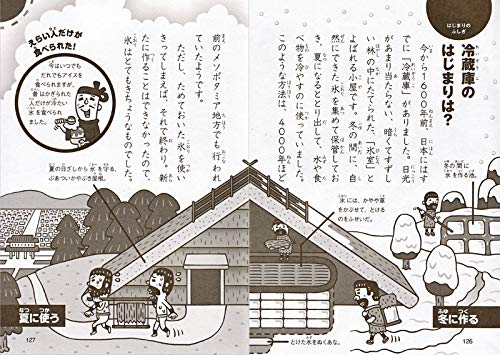 はじまりのふしぎ
冷蔵庫の
はじまりは?
今から1600年前、日本にはす
でに「冷蔵庫」がありました。日光
があまり当たらない、暗くてすずし
い林の中にたてられた、「氷室」と
よばれる小屋です。冬の間に、自
然にできた氷を集めて保存してお
き、夏になるととり出して、水や食
べ物を冷やすのに使っていました。
このような方法は、4000年ほど
冬の間に
氷を作る池。
氷には、かやや草
をかぶせて、とける
のをふせいだ。
とけた水をぬくあな。
冬に作る
126
前のメソポタミア地方でも行われ
ていたようです。
ただし、ためておいた氷を使い
きってしまえば、それで終わり。新
たに作ることはできなかったので、
氷はとてもきちょうなものでした。
えらい人だけが
食べられた!
今はいつでも
だれでもアイスを
食べられますが、
昔はかぎられた
人だけが冷たい
氷を食べられ
ました。
夏の日ざしから氷を守る、
ぶあついかやぶき屋根。
夏に使う
127